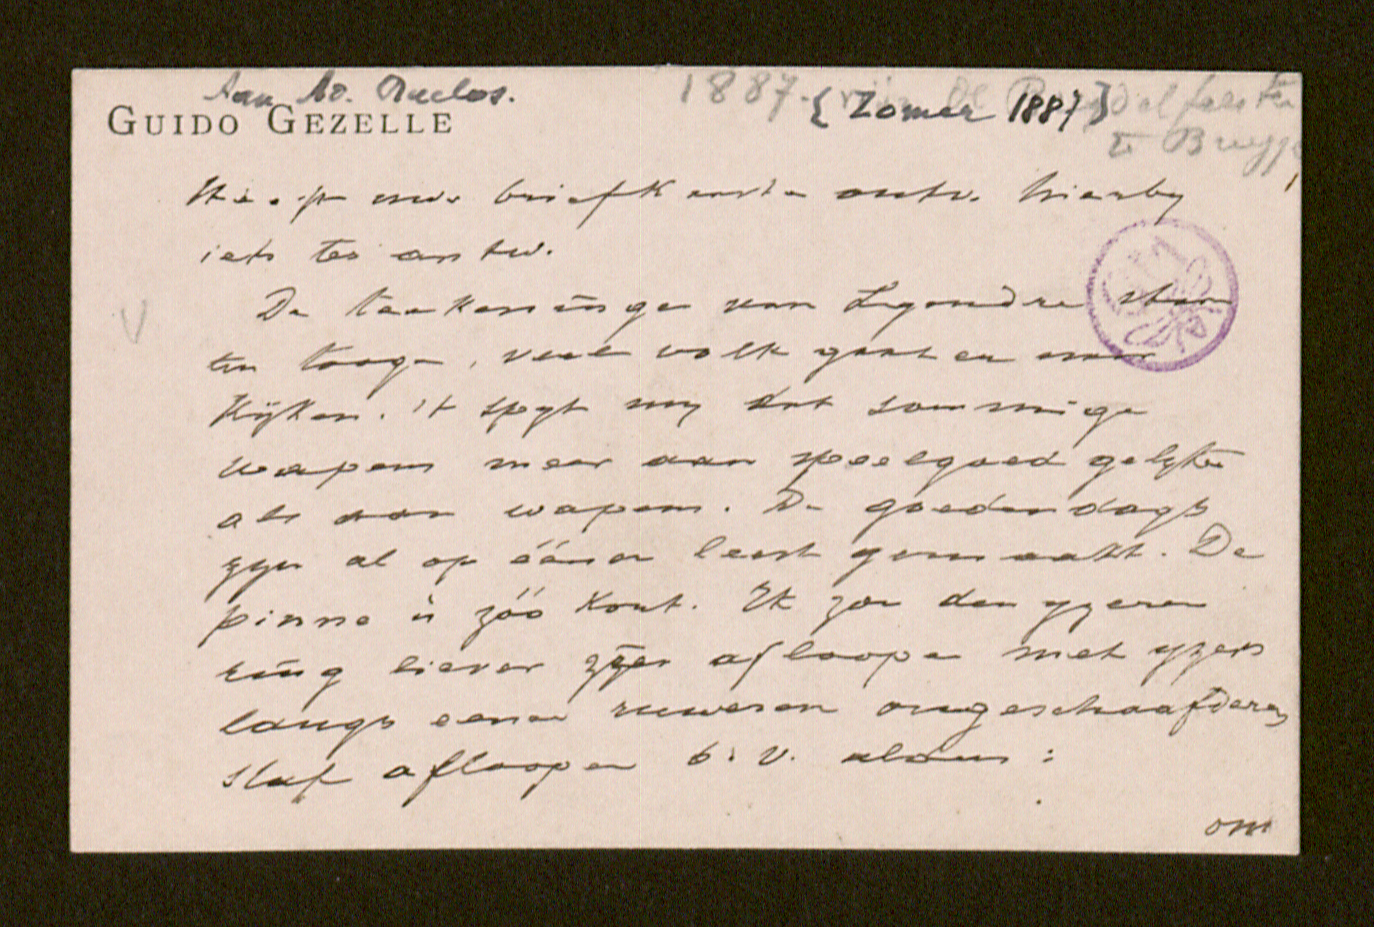 Aan Ad. Duclos.
1887. {Zomer 1887}
GUIDO GEZELLE
te Brugge
uwe briefkaarte ontv. hierby
iets ten antw.
De teekeninge van Legendre staan
ten tooge, veel volk gaat er naar
kijken. 't spyt my dat sommige
wapens meer aan speelgoed gelyken
als aan wapens. De goedendags
zyn al op éénen leest gemaakt. De
pinne is zóó kort. Ik zou den yzeren
ring liever zien afloopen met yzers
langs eenen ruweren ongeschaafderen
staf afloopen b.v. aldus:
om